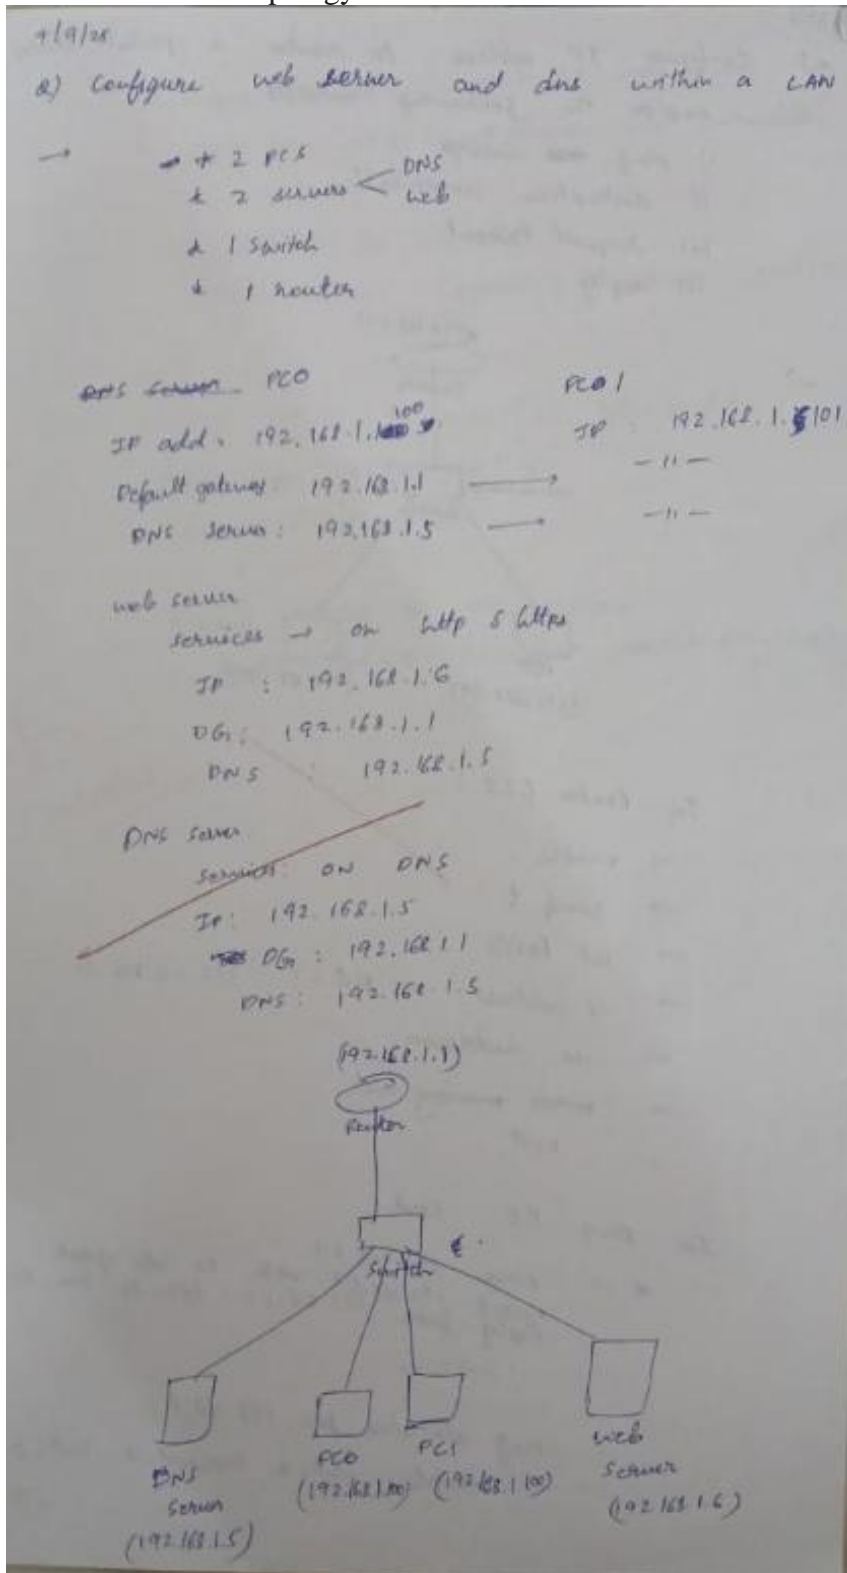 Q) Configure web server and dns within a LAN
→ * 2 PCS
* 2 servers < DNS
web
* 1 switch
* 1 router
PC0
IP add: 192.168.1.100
Default gateway: 192.168.1.1 →
DNS Server: 192.168.1.5 →
PC 1
IP : 192.168.1.101
— 11 —
— 11 —
web server
services → on http & https
IP : 192.168.1.6
DG: 192.168.1.1
DNS : 192.168.1.5
DNS Server
Services: ON DNS
IP: 192.168.1.5
DG: 192.168.1.1
DNS: 192.168.1.5
(192.168.1.1)
Router
Switch
DNS
Server
(192.168.1.5)
PC0
(192.168.1.100)
PC1
(192.168.1.100)
web
Server
(192.168.1.6)